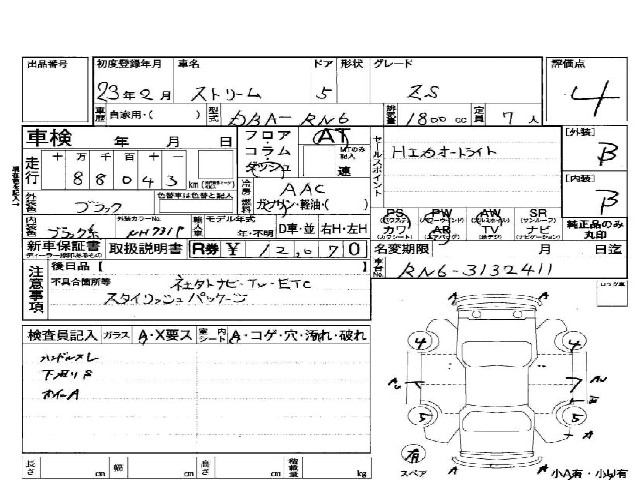 出品番号 初度登録年月 車名 ドア 形状 グレード 評価点
23年2月 ストリーム 5 ZS 4
車歴 自家用・( ) 型式 DBA-RN6 排気量 1800 cc 定員 7人
車検 年 月 日 フロア・コラム・ダッシュ AT MTのみ記入 速 セールスポイント HIDオートライト [外装] B
走行 十 万 千 百 十 一
8 8 0 4 3 km 冷房 AAC [内装] B
外装色 色替車は色替と記入 燃料 ガソリン・軽油・( )
ブラック PS PW AW SR
(パワーウインド) (アルミホイール) (サンルーフ)
カワ AB TV ナビ 純正品のみ丸印
(エアバッグ) (ナビゲーション)
内装色 ブラック系 外装カラーNo. NH731P 輸入車 モデル年式 年・不明 D車・並 右H・左H
新車保証書 取扱説明書 R券 ¥ 12070 名変期限 月 日迄
注意事項 後日品 [ 車台No. RN6-3132411
不具合箇所等 社外ナビ-TV-ETC
スタイリッシュパッケージ
検査員記入 ガラス A・X要ス 室内シート A・コゲ・穴・汚れ・破れ
ハンドルスレ
下廻りS
ホイールA
4 4
5 5
A A
有
スペア
小A有・小U有
長さ cm 幅 cm 高さ cm 積載量 kg